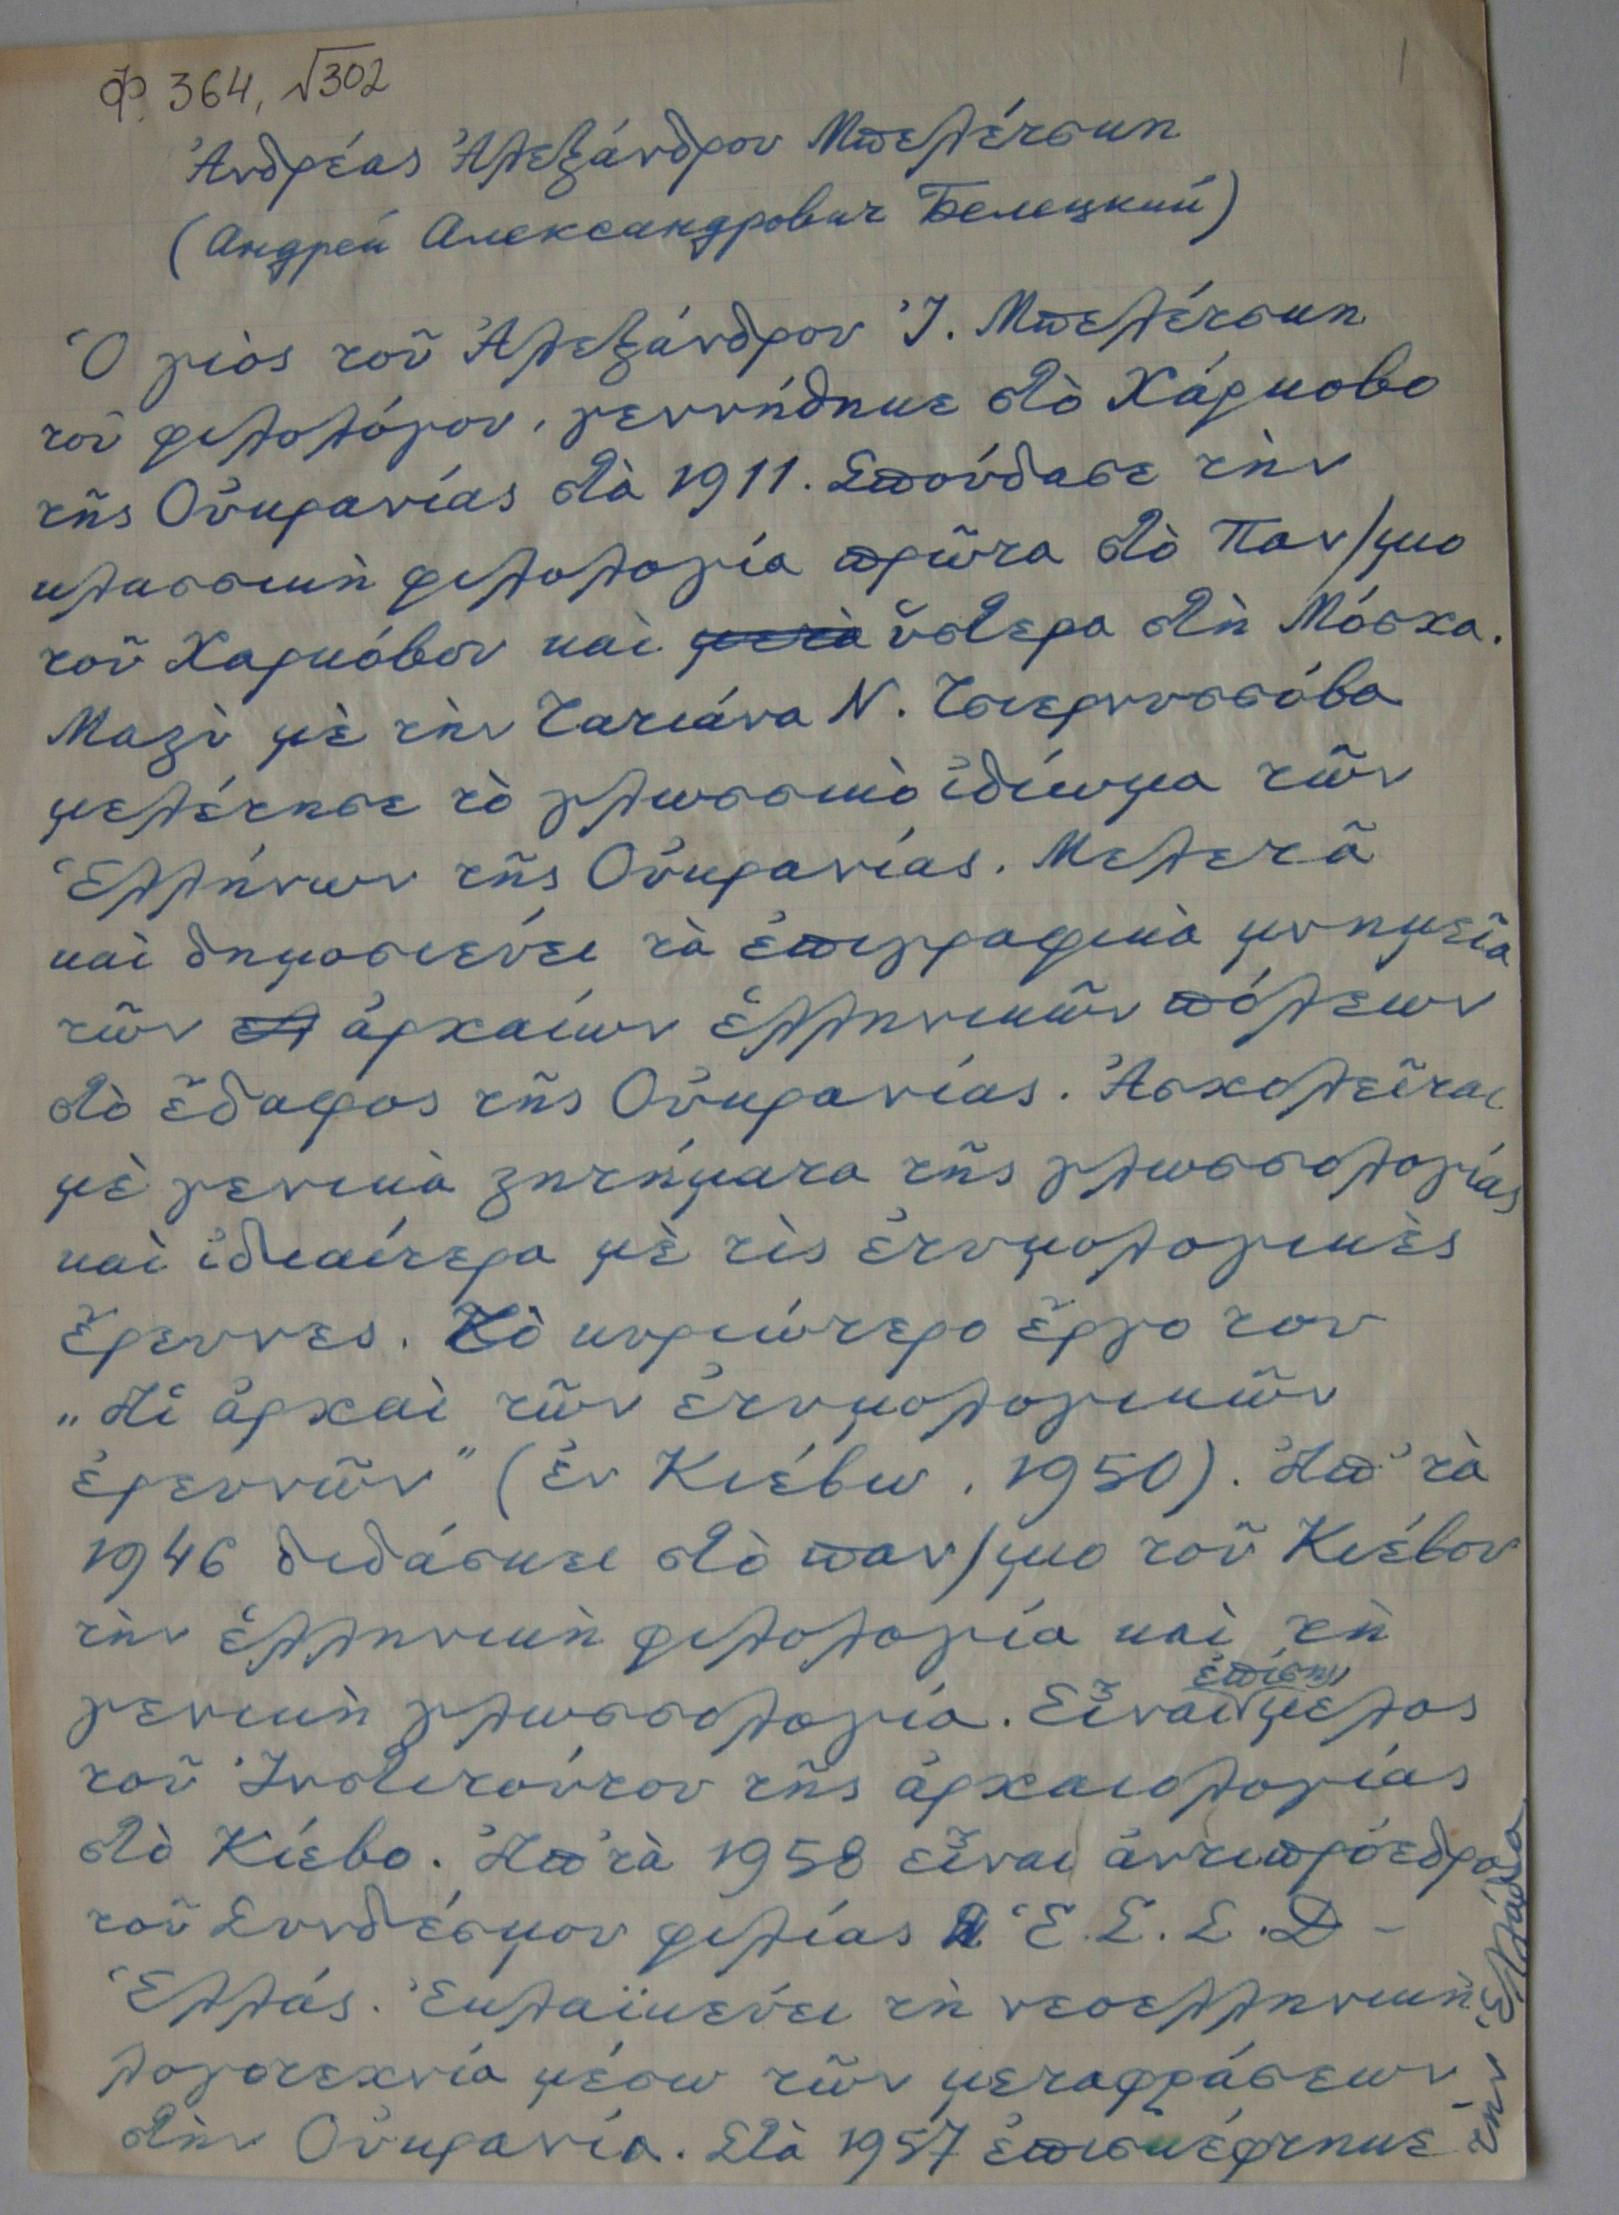 Ф. 364, √302
1
Ἀνδρέας Ἀλεξάνδρου Μπελέτσκη
(Андрей Александрович Белецкий)
Ὁ γιὸς τοῦ Ἀλεξάνδρου Ἰ. Μπελέτσκη
τοῦ φιλολόγου, γεννήθηκε στὸ Χάρκοβο
τῆς Οὐκρανίας στὰ 1911. Σπούδασε τὴν
κλασσικὴ φιλολογία πρῶτα στὸ Παν/μιο
τοῦ Χαρκόβου καὶ μετὰ ὕστερα στὴ Μόσχα.
Μαζὶ μὲ τὴν Τατιάνα Ν. Τσιερνυσσόβα
μελέτησε τὸ γλωσσικὸ ἰδίωμα τῶν
Ἑλλήνων τῆς Οὐκρανίας. Μελετᾶ
καὶ δημοσιεύει τὰ ἐπιγραφικὰ μνημεῖα
τῶν ἀρχαίων ἑλληνικῶν πόλεων
στὸ ἔδαφος τῆς Οὐκρανίας. Ἀσχολεῖται
μὲ γενικὰ ζητήματα τῆς γλωσσολογίας
καὶ ἰδιαίτερα μὲ τὶς ἐτυμολογικὲς
ἔρευνες. Τὸ κυριώτερο ἔργο του
„Αἱ ἀρχαὶ τῶν ἐτυμολογικῶν
ἐρευνῶν" (ἐν Κιέβω, 1950). Ἀπ' τὰ
1946 διδάσκει στὸ παν/μιο τοῦ Κιέβου
τὴν ἑλληνικὴ φιλολογία καὶ τὴ
γενικὴ γλωσσολογία. Εἶναι ἐπίσης μελος
τοῦ Ἰνστιτούτου τῆς ἀρχαιολογίας
στὸ Κίεβο. Ἀπ' τὰ 1958 εἶναι ἀντιπρόεδρο
τοῦ Συνδέσμου φιλίας Ἑ.Σ.Σ.Δ –
Ἑλλάς. Ἐκλαϊκεύει τὴ νεοελληνικὴ
λογοτεχνία μέσω τῶν μεταφράσεων
στὴν Οὐκρανία. Στὰ 1957 ἐπισκέφτηκε
τὴν Ἑλλάδα